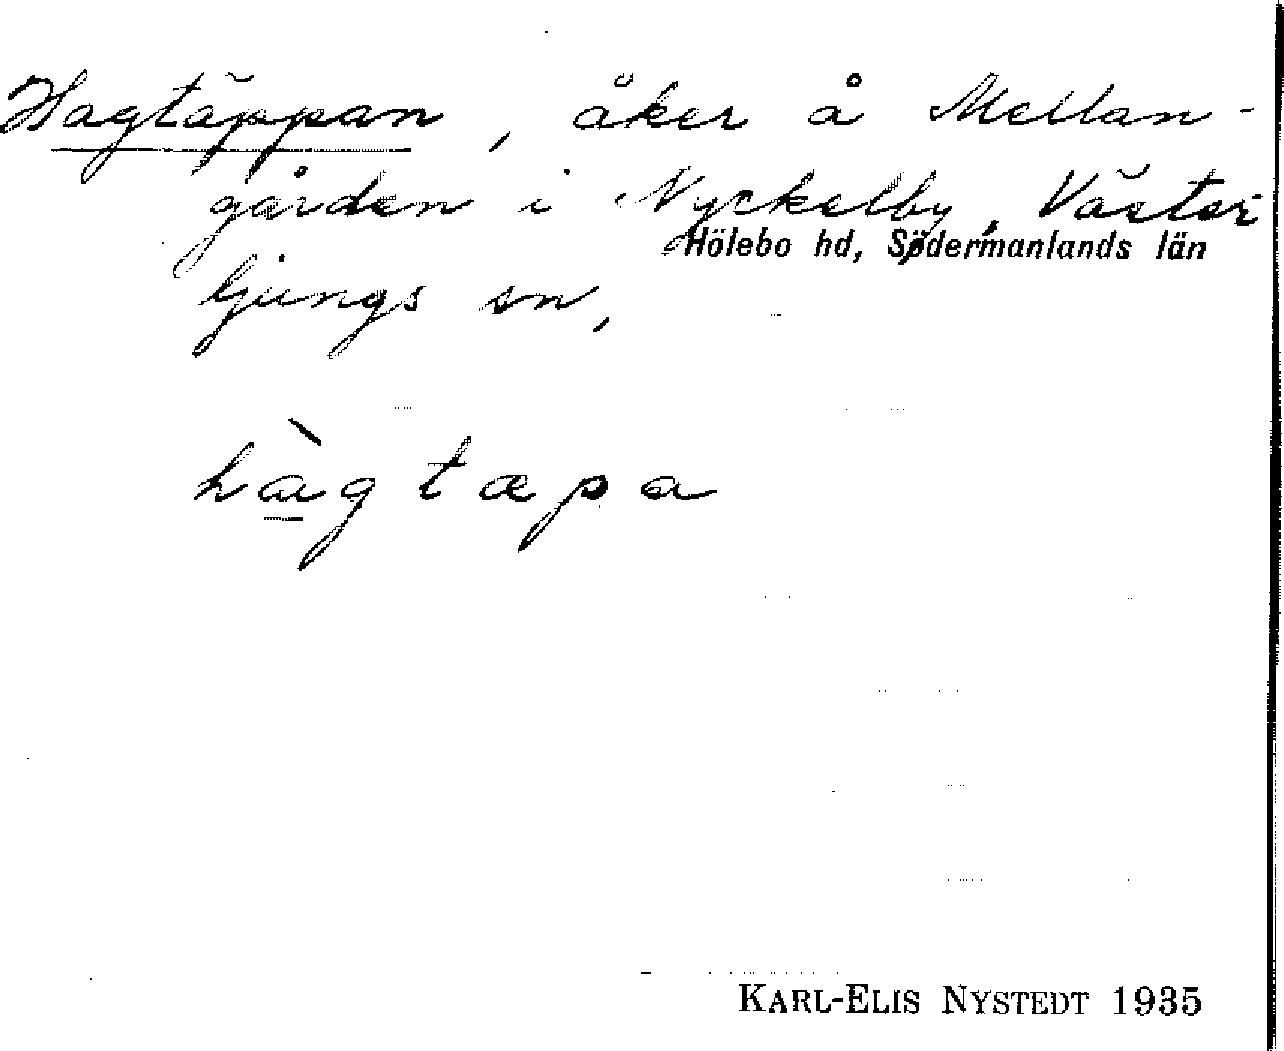 Hagtäppan, åker å Mellan-
gården i Nyckelby, Väster-
Hölebo hd, Södermanlands län
ljungs sn,
hàgtæpa
KARL-ELIS NYSTEDT 1935